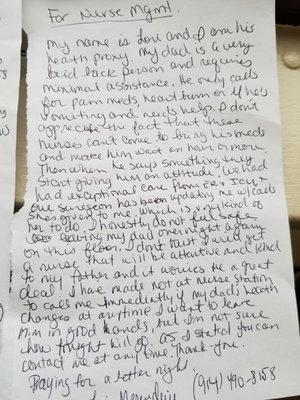 For Nurse Mgmt.
My name is Lori and I am his
health proxy. My dad is a very
laid back person and requires
minimal assistance. He only calls
for pain meds, heart burn or if he's
vomiting and needs help. I don't
appreciate the fact that these
nurses can't come to bring his meds
and make him wait an hour or more.
Then when he says something they
start giving him an attitude. We had
had exceptional care from
Our surgeon has been updating me w/ calls
She's given to me. which is very kind of
her to do. I honestly do not feel safe
leaving my dad overnight again
on this floor. I don't trust I will get
a nurse that will be attentive and kind
to my father and it worries me a great
deal. I have made not at nurse station
to call me immediately if my dad's health
changes at anytime. I want to leave
him in good hands, but I'm not sure
how tonight will go. As I stated you can
contact me at any time. Thank-you.
Praying for a better night.
(914) 490-8158